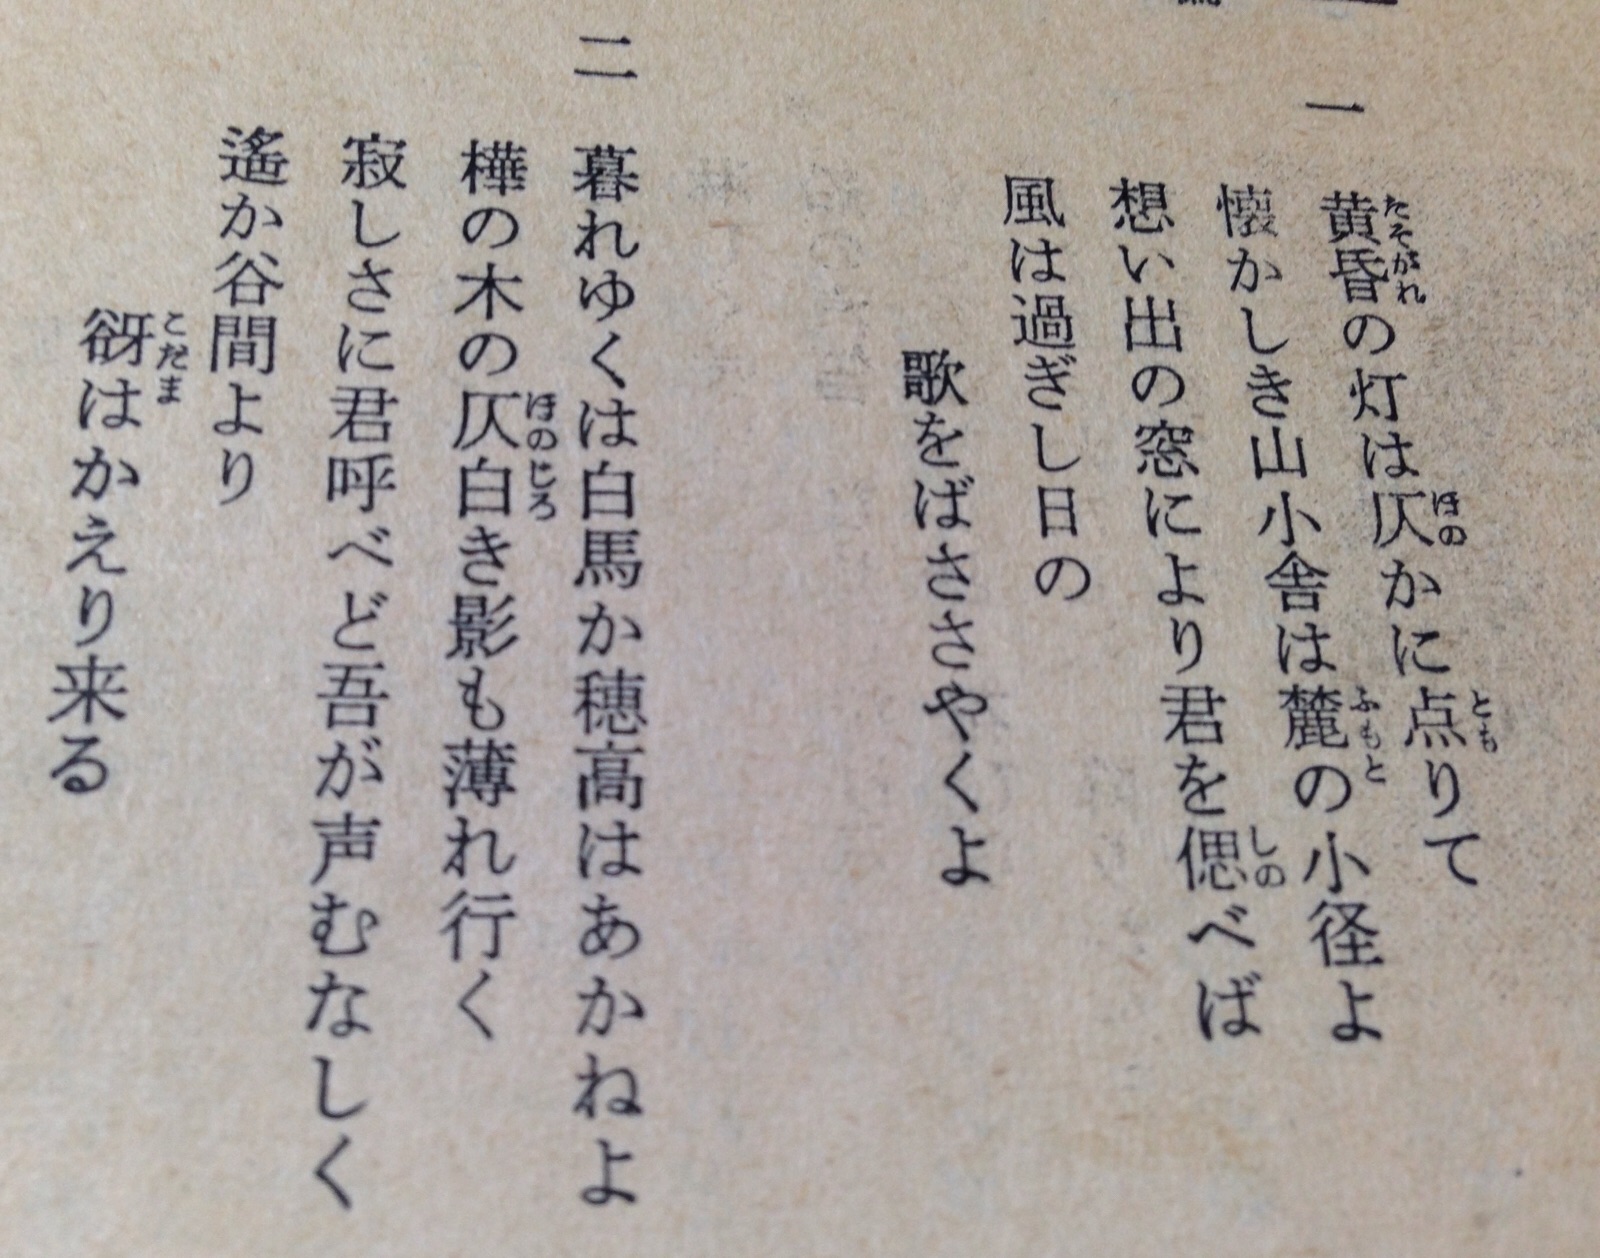 一
黄昏の灯は仄かに点りて
懐かしき山小舎は麓の小径よ
想い出の窓により君を偲べば
風は過ぎし日の
歌をばささやくよ
二
暮れゆくは白馬か穂高はあかねよ
樺の木の仄白き影も薄れ行く
寂しさに君呼べど吾が声むなしく
遙か谷間より
谺はかえり来る